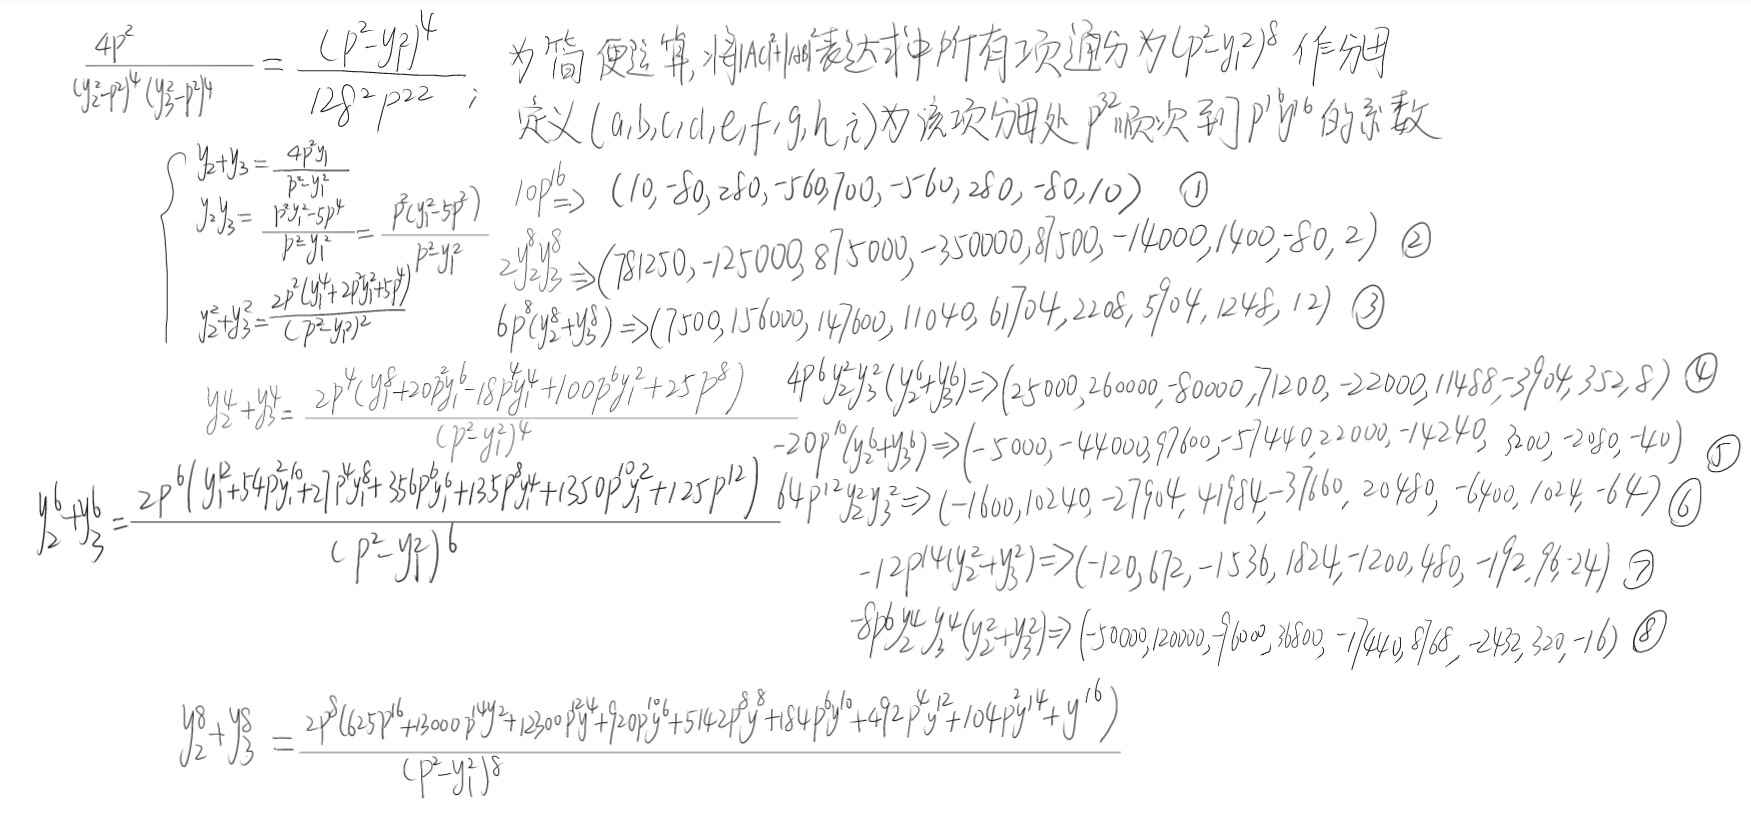 4p²/((y₂²-p²)⁴(y₃²-p²)⁴) = (p²-y₁²)⁴/(128²p²²) ;
为简便运算,将|AC|²+|AB|²表达式中所有项通分为(p²-y₁²)⁸作分母
定义(a,b,c,d,e,f,g,h,i)为该项分母处p³²顺次到p¹⁶y¹⁶的系数
{ y₂+y₃ = 4p²y₁/(p²-y₁²)
y₂y₃ = (p²y₁²-5p⁴)/(p²-y₁²) = p²(y₁²-5p²)/(p²-y₁²)
y₂²+y₃² = 2p²(y₁⁴+2p²y₁²+5p⁴)/(p²-y₁²)²
10p¹⁶ ⇒ (10,-80,280,-560,700,-560,280,-80,10) ①
2y₂⁸y₃⁸ ⇒ (781250,-125000,875000,-350000,87500,-14000,1400,-80,2) ②
6p⁸(y₂⁸+y₃⁸) ⇒ (7500,156000,147600,11040,61704,2208,5904,1248,12) ③
y₂⁴+y₃⁴ = 2p⁴(y₁⁸+20p²y₁⁶-18p⁴y₁⁴+100p⁶y₁²+25p⁸)/(p²-y₁²)⁴
4p⁶y₂²y₃²(y₂⁶+y₃⁶) ⇒ (25000,260000,-80000,71200,-22000,11488,-3904,352,8) ④
-20p¹⁰(y₂⁶+y₃⁶) ⇒ (-5000,-44000,97600,-57440,22000,-14240,3200,-2080,-40) ⑤
y₂⁶+y₃⁶ = 2p⁶(y₁¹²+54p²y₁¹⁰+27p⁴y₁⁸+356p⁶y₁⁶+135p⁸y₁⁴+1350p¹⁰y₁²+125p¹²)/(p²-y₁²)⁶
64p¹²y₂²y₃² ⇒ (-1600,10240,-27904,41984,-37660,20480,-6400,1024,-64) ⑥
-12p¹⁴(y₂²+y₃²) ⇒ (-120,672,-1536,1824,-1200,480,-192,96,-24) ⑦
-8p⁶y₂⁴y₃⁴(y₂²+y₃²) ⇒ (-50000,120000,-96000,36800,-17440,8768,-2432,320,-16) ⑧
y₂⁸+y₃⁸ = 2p⁸(625p¹⁶+13000p¹⁴y²+12300p¹²y⁴+920p¹⁰y⁶+5142p⁸y⁸+184p⁶y¹⁰+492p⁴y¹²+104p²y¹⁴+y¹⁶)/(p²-y₁²)⁸